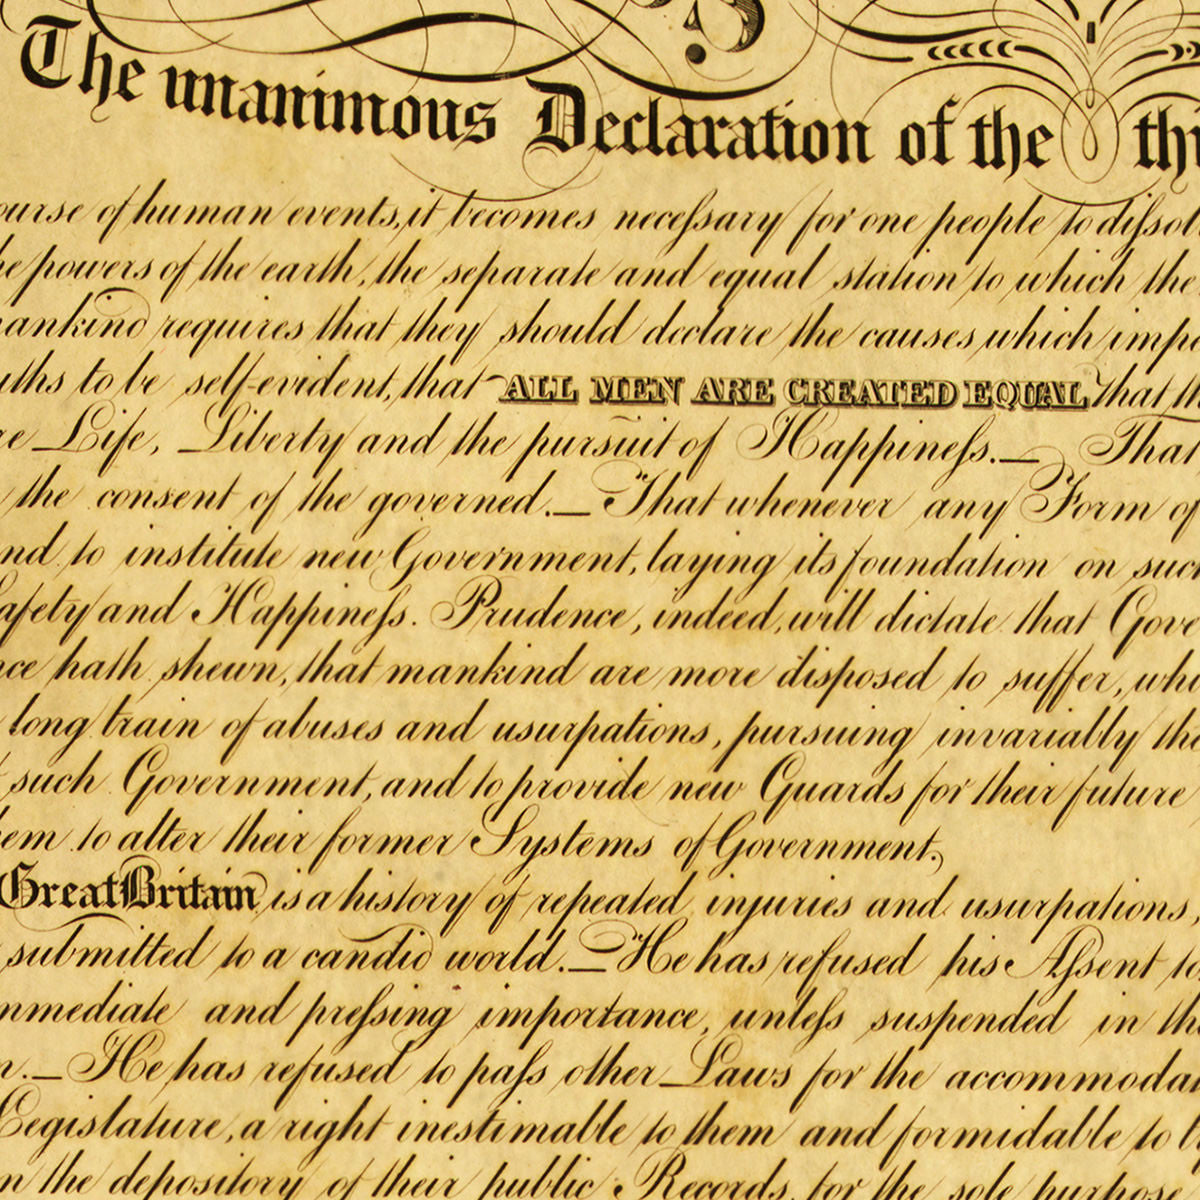 The unanimous Declaration of the thi
ourse of human events, it becomes neceſsary for one people to diſsol
he powers of the earth, the separate and equal station to which the
mankind requires that they should declare the causes which impe
uths to be self-evident, that ALL MEN ARE CREATED EQUAL that th
re Life, Liberty and the pursuit of Happineſs.— That
the consent of the governed.— That whenever any Form of
nd to institute new Government, laying its foundation on such
afety and Happineſs. Prudence, indeed, will dictate that Gove
nce hath shewn, that mankind are more disposed to suffer, whi
long train of abuses and usurpations, pursuing invariably the
such Government, and to provide new Guards for their future
hem to alter their former Systems of Government.
Great Britain is a history of repeated injuries and usurpations,
submitted to a candid world.— He has refused his Aſsent to
mmediate and preſsing importance, unleſs suspended in the
n.— He has refused to paſs other Laws for the accommodat
Legislature, a right inestimable to them and formidable to ty
m the depository of their public Records, for the sole purpose